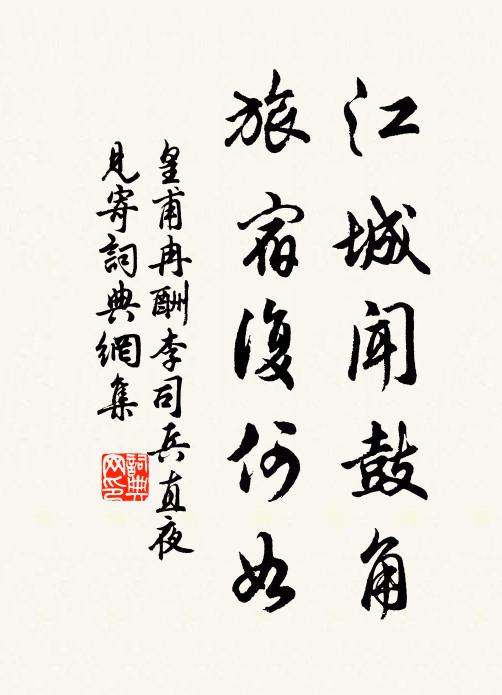 江城聞鼓角
旅宿復何如
皇甫冉酬李司兵直夜
見寄詞典網集
詞典
网印